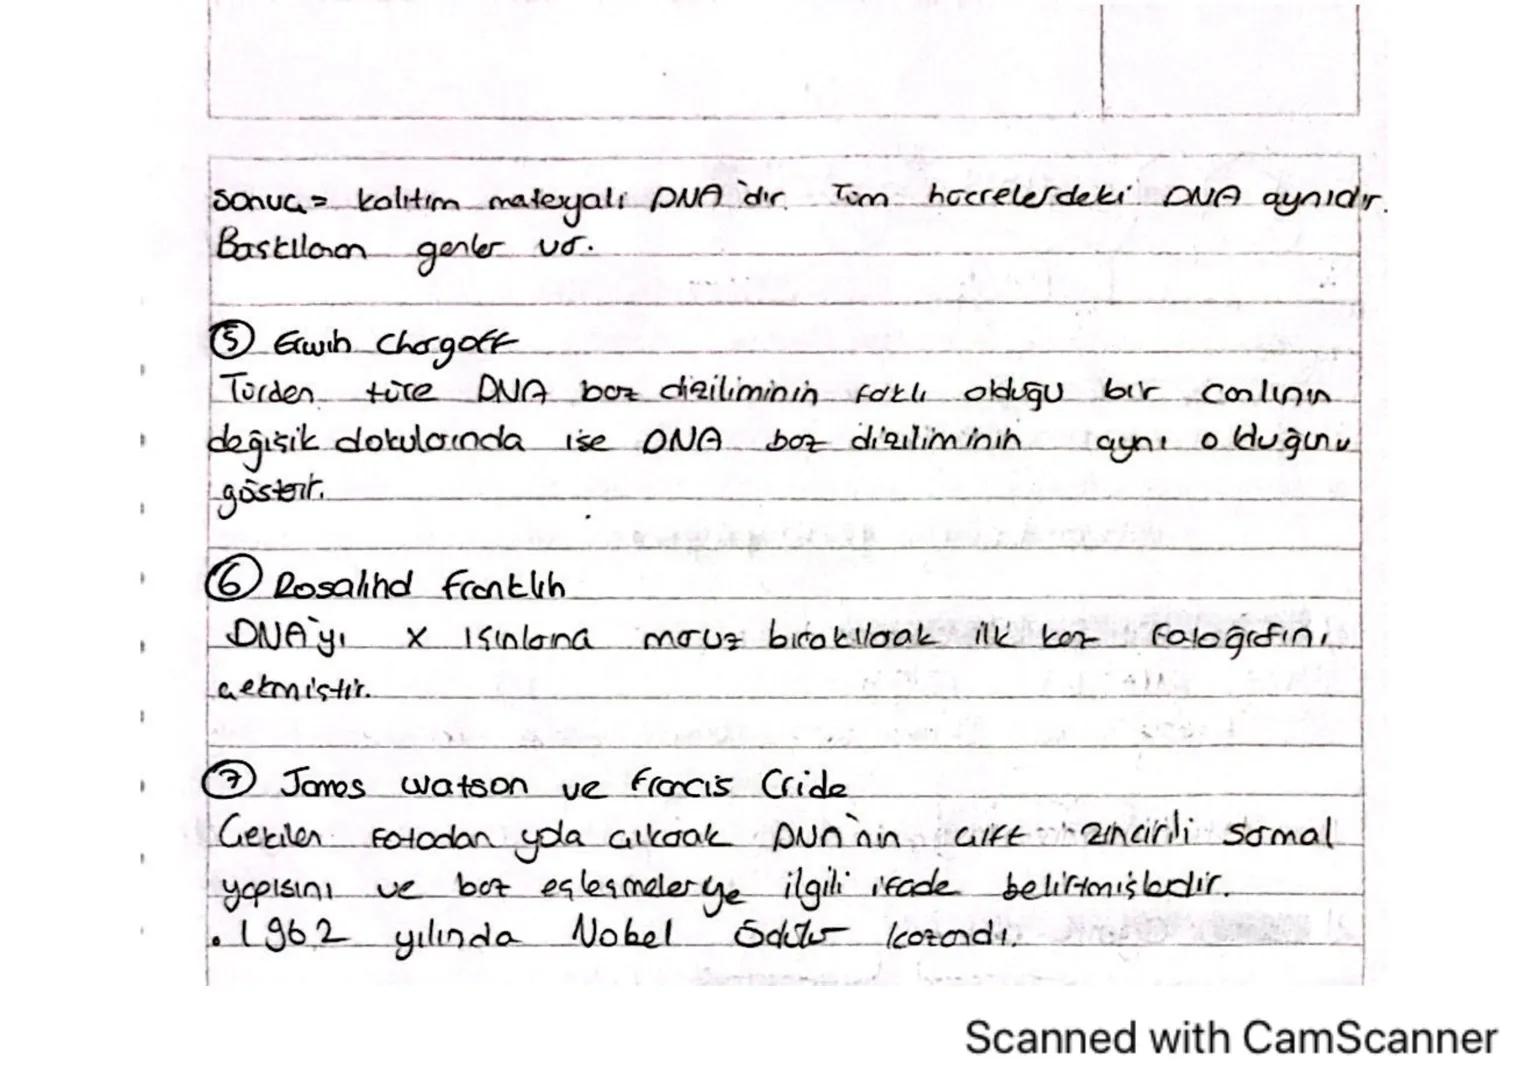 Sonuç = kalıtım materyali DNA'dır. Tüm hücrelerdeki DNA aynıdır.
Baskılanan genler var.
5 Erwin Chargaff
Türden türe DNA baz diziliminin farklı olduğu bir canlının
değişik dokularında ise DNA baz diziliminin aynı olduğunu
gösterir.
6 Rosalind Franklin
DNA'yı X ışınlarına maruz bırakılarak ilk kez fotoğrafını
çekmiştir.
7 James Watson ve Francis Cride
Çekilen Fotodan yola çıkarak DNA'nin çift zincirili sarmal
yapısını ve baz eşleşmeleriye ilgili ifade belirtmişlerdir.
. 1962 yılında Nobel Ödülü kazandı.
Scanned with CamScanner